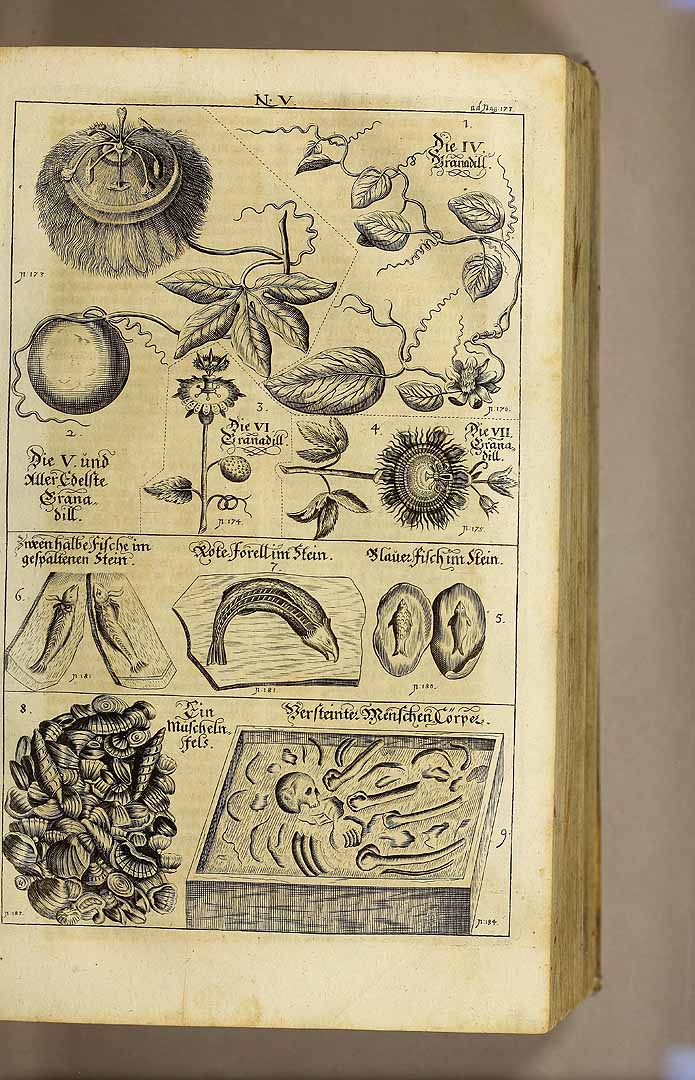 N. V.
ad pag. 173.
1.
Die IV.
Granadill.
p. 173.
p. 176.
2.
Die V. und
Aller Edelste
Grana-
dill.
3.
Die VI
Granadill
p. 174.
4.
Die VII.
Grana-
dill.
p. 175.
Zween halbe Fische im
gespaltenen Stein.
Rote Forell im Stein.
Blauer Fisch im Stein.
6.
7.
5.
p. 181.
p. 181.
p. 180.
8.
Ein
Muscheln-
fels.
Versteinter Menschen Cörper.
9.
p. 183.
p. 184.